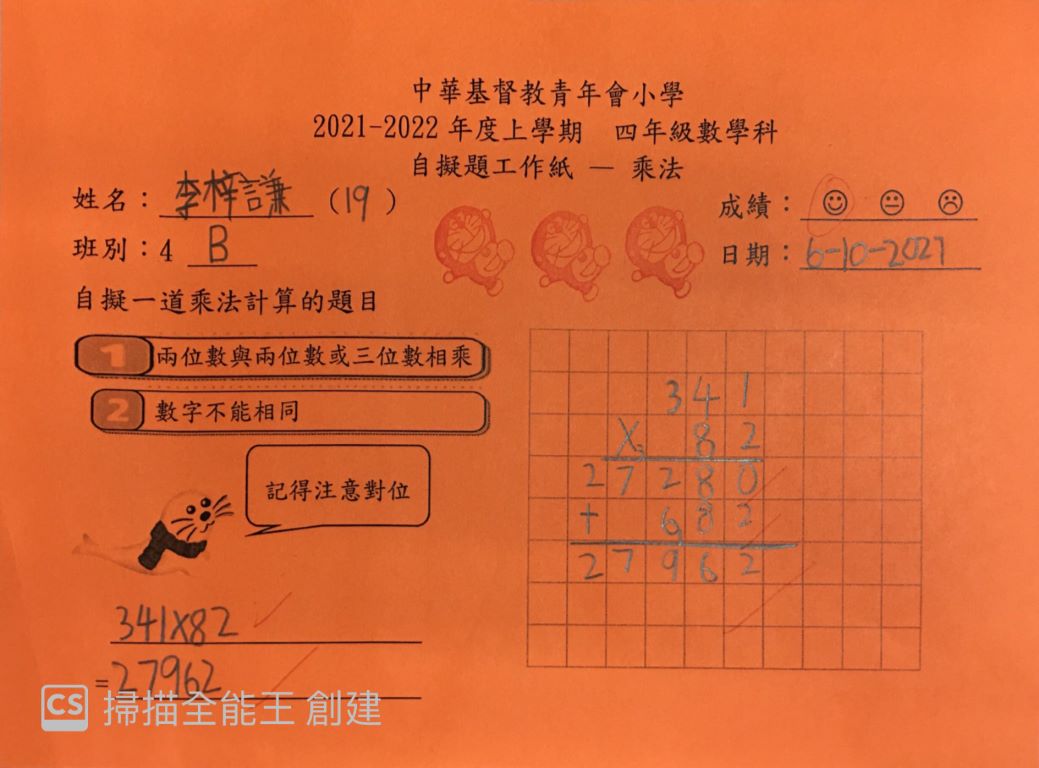 中華基督教青年會小學
2021-2022 年度上學期 四年級數學科
自擬題工作紙 — 乘法
姓名：李梓謙 (19)
成績：
班別：4 B
日期：6-10-2021
自擬一道乘法計算的題目
1 兩位數與兩位數或三位數相乘
2 數字不能相同
記得注意對位
341
X 82
27280
+ 682
27962
341X82
=27962
CS 掃描全能王 創建